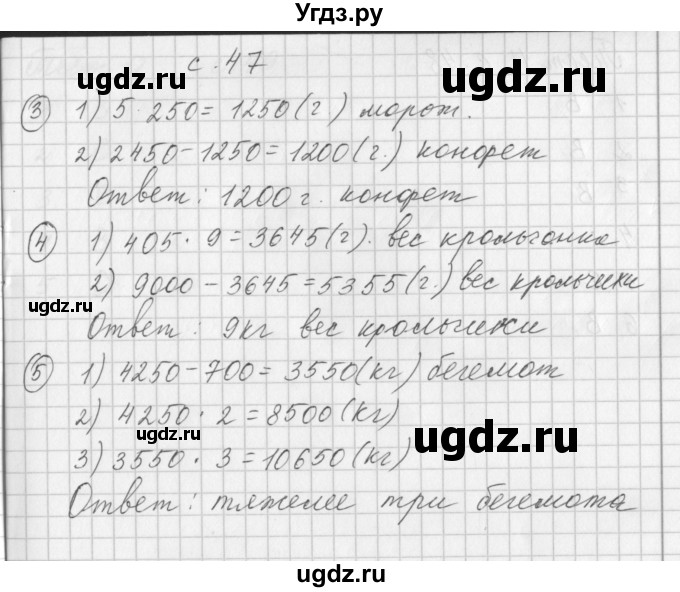 Угдз.ру
с. 47
ugdz.ru
ugdz.ru
③ 1) 5 · 250 = 1250 (г) морож.
2) 2450 - 1250 = 1200 (г.) конфет
Ответ: 1200 г. конфет
④ 1) 405 · 9 = 3645 (г). вес крольчонка
2) 9000 - 3645 = 5355 (г.) вес крольчихи
ugdz.ru
Ответ: 9кг вес крольчихи
⑤ 1) 4250 - 700 = 3550 (кг) бегемот
2) 4250 · 2 = 8500 (кг)
ugdz.ru
ugdz.ru
3) 3550 · 3 = 10650 (кг)
Ответ: тяжелее три бегемота
ugdz.ru
ugdz.ru